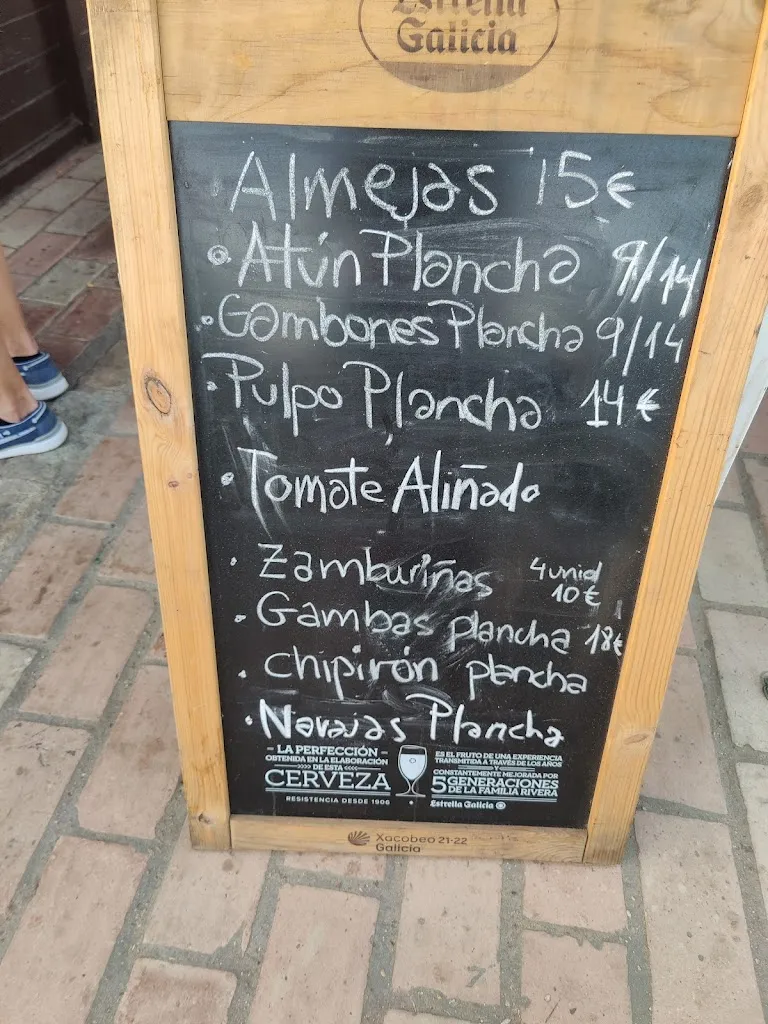 Estrella
Galicia
Almejas 15€
• Atún Plancha 9/14
• Gambones Plancha 9/14
• Pulpo Plancha 14€
• Tomate Aliñado
• Zamburiñas 4 unid
10€
• Gambas plancha 18€
• chipirón plancha
• Navajas Plancha
- LA PERFECCIÓN -
OBTENIDA EN LA ELABORACIÓN
>>>> DE ESTA <<<<
CERVEZA
RESISTENCIA DESDE 1906
ES EL FRUTO DE UNA EXPERIENCIA
TRANSMITIDA A TRAVÉS DE LOS AÑOS
Y
CONSTANTEMENTE MEJORADA POR
5 GENERACIONES
DE LA FAMILIA RIVERA
Estrella Galicia
Xacobeo 21·22
Galicia